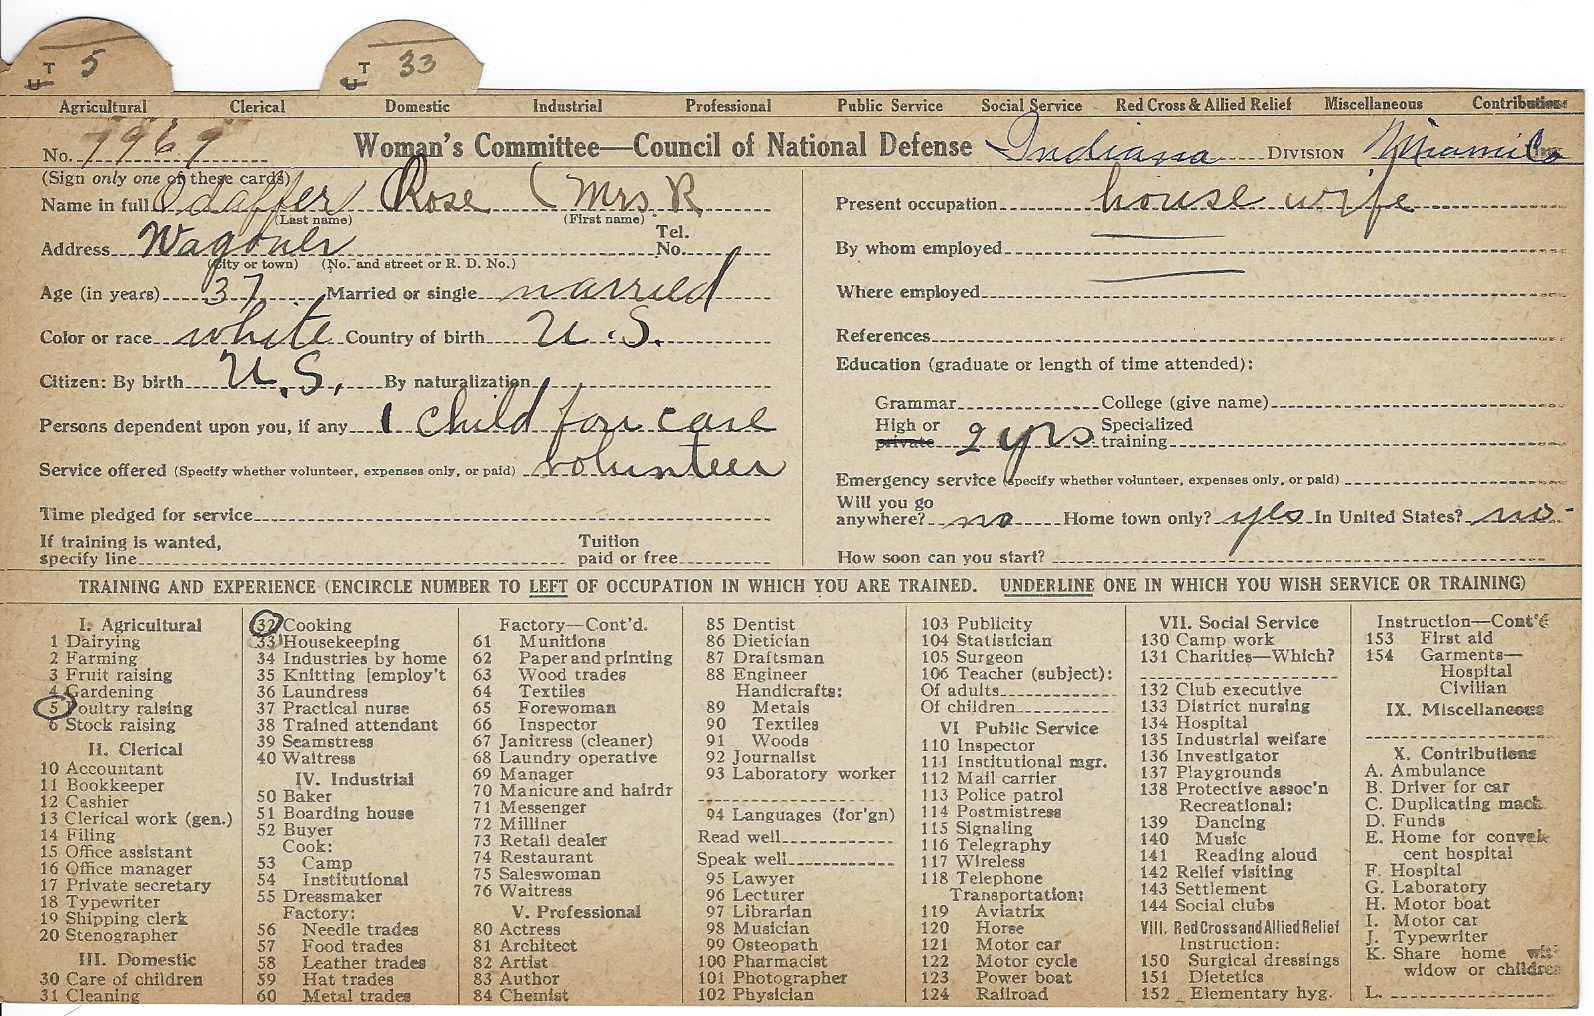 T 5 T 33
Agricultural Clerical Domestic Industrial Professional Public Service Social Service Red Cross & Allied Relief Miscellaneous Contributions
No. 7969 Woman's Committee—Council of National Defense Indiana DIVISION Miami Co
(Sign only one of these cards)
Name in full Odaffer Rose (Mrs R
(Last name) (First name)
Address Wagoner Tel. No.
(City or town) (No. and street or R. D. No.)
Age (in years) 37 Married or single married
Color or race white Country of birth U.S.
Citizen: By birth U.S. By naturalization
Persons dependent upon you, if any 1 child for care
Service offered (Specify whether volunteer, expenses only, or paid) volunteer
Time pledged for service
If training is wanted, specify line Tuition paid or free
Present occupation house wife
By whom employed
Where employed
References
Education (graduate or length of time attended):
Grammar College (give name)
High or private 2 yrs Specialized training
Emergency service (specify whether volunteer, expenses only, or paid)
Will you go anywhere? no Home town only? yes In United States? no-
How soon can you start?
TRAINING AND EXPERIENCE (ENCIRCLE NUMBER TO LEFT OF OCCUPATION IN WHICH YOU ARE TRAINED. UNDERLINE ONE IN WHICH YOU WISH SERVICE OR TRAINING)
I. Agricultural
1 Dairying
2 Farming
3 Fruit raising
4 Gardening
5 Poultry raising
6 Stock raising
II. Clerical
10 Accountant
11 Bookkeeper
12 Cashier
13 Clerical work (gen.)
14 Filing
15 Office assistant
16 Office manager
17 Private secretary
18 Typewriter
19 Shipping clerk
20 Stenographer
III. Domestic
30 Care of children
31 Cleaning
32 Cooking
33 Housekeeping
34 Industries by home
35 Knitting [employ't
36 Laundress
37 Practical nurse
38 Trained attendant
39 Seamstress
40 Waitress
IV. Industrial
50 Baker
51 Boarding house
52 Buyer
Cook:
53 Camp
54 Institutional
55 Dressmaker
Factory:
56 Needle trades
57 Food trades
58 Leather trades
59 Hat trades
60 Metal trades
Factory—Cont'd.
61 Munitions
62 Paper and printing
63 Wood trades
64 Textiles
65 Forewoman
66 Inspector
67 Janitress (cleaner)
68 Laundry operative
69 Manager
70 Manicure and hairdr
71 Messenger
72 Milliner
73 Retail dealer
74 Restaurant
75 Saleswoman
76 Waitress
V. Professional
80 Actress
81 Architect
82 Artist
83 Author
84 Chemist
85 Dentist
86 Dietician
87 Draftsman
88 Engineer
Handicrafts:
89 Metals
90 Textiles
91 Woods
92 Journalist
93 Laboratory worker
94 Languages (for'gn)
Read well
Speak well
95 Lawyer
96 Lecturer
97 Librarian
98 Musician
99 Osteopath
100 Pharmacist
101 Photographer
102 Physician
103 Publicity
104 Statistician
105 Surgeon
106 Teacher (subject):
Of adults
Of children
VI Public Service
110 Inspector
111 Institutional mgr.
112 Mail carrier
113 Police patrol
114 Postmistress
115 Signaling
116 Telegraphy
117 Wireless
118 Telephone
Transportation:
119 Aviatrix
120 Horse
121 Motor car
122 Motor cycle
123 Power boat
124 Railroad
VII. Social Service
130 Camp work
131 Charities—Which?
132 Club executive
133 District nursing
134 Hospital
135 Industrial welfare
136 Investigator
137 Playgrounds
138 Protective assoc'n
Recreational:
139 Dancing
140 Music
141 Reading aloud
142 Relief visiting
143 Settlement
144 Social clubs
VIII. Red Cross and Allied Relief
Instruction:
150 Surgical dressings
151 Dietetics
152 Elementary hyg.
Instruction—Cont'd
153 First aid
154 Garments—
Hospital
Civilian
IX. Miscellaneous
X. Contributions
A. Ambulance
B. Driver for car
C. Duplicating mach
D. Funds
E. Home for convales
cent hospital
F. Hospital
G. Laboratory
H. Motor boat
I. Motor car
J. Typewriter
K. Share home with
widow or children
L.